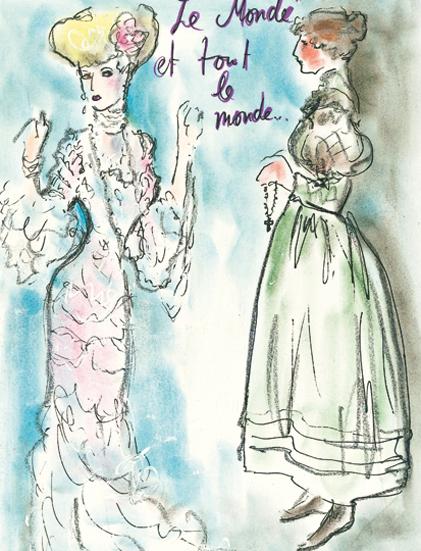 Le Monde
et tout
le
monde..